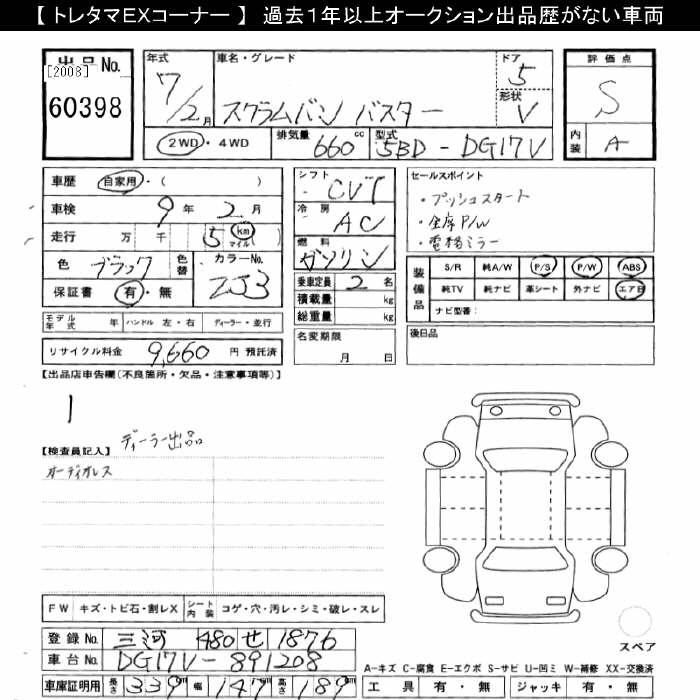 【 トレタマＥＸコーナー 】 過去１年以上オークション出品歴がない車両
出品No.
[2008]
60398
年式
7/2月
車名・グレード
スクラムバン バスター
ドア
5
形状
V
2WD・4WD
排気量
660cc
型式
5BD - DG17V
評価点
S
内装
A
車歴 自家用・( )
車検 9年 2月
走行 万 千 5 km マイル ( )
色 ブラック
色替
カラーNo.
ZJ3
保証書 有・無
シフト
CVT
冷房
AC
燃料
ガソリン
乗車定員 2 名
積載量 kg
総重量 kg
セールスポイント
・プッシュスタート
・全席P/W
・電格ミラー
装備品
S/R 純A/W P/S P/W ABS
純TV 純ナビ 革シート 外ナビ エアB
ナビ型番：
モデル年式 年 ハンドル 左・右 ディーラー・並行
リサイクル料金 9,660 円 預託済
名変期限
月 日
後日品
【出品店申告欄(不良箇所・欠品・注意事項等)】
1
ディーラー出品
【検査員記入】
オーディオレス
FW キズ・トビ石・割レX シート内装 コゲ・穴・汚レ・シミ・破レ・スレ
登録No. 三河 480 せ 1876
車台No. DG17V-891208
車庫証明用 長さ 339cm 幅 147cm 高さ 189cm
スペア
A－キズ C－腐食 E－エクボ S－サビ U－凹ミ W－補修 XX－交換済
工具 有・無 ジャッキ 有・無